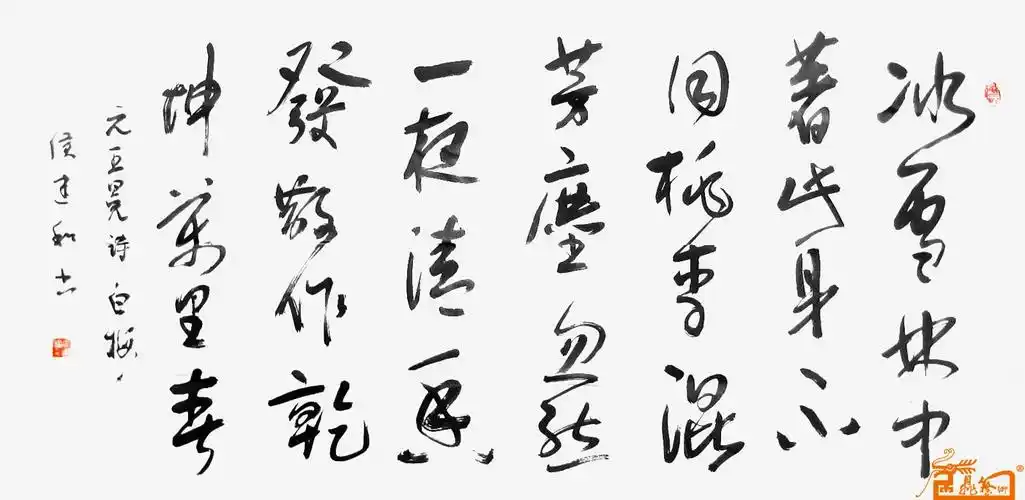 冰雪林中
著此身不
同桃李混
芳塵忽然
一夜清香
發散作乾
坤萬里春
元王冕詩白梅
侯建和书